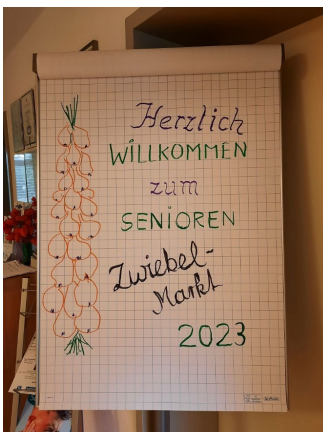 Herzlich
WILLKOMMEN
zum
SENIOREN
Zwiebel-
Markt
2023